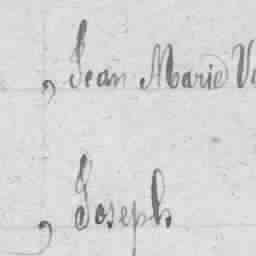 , Jean Marie
, Joseph